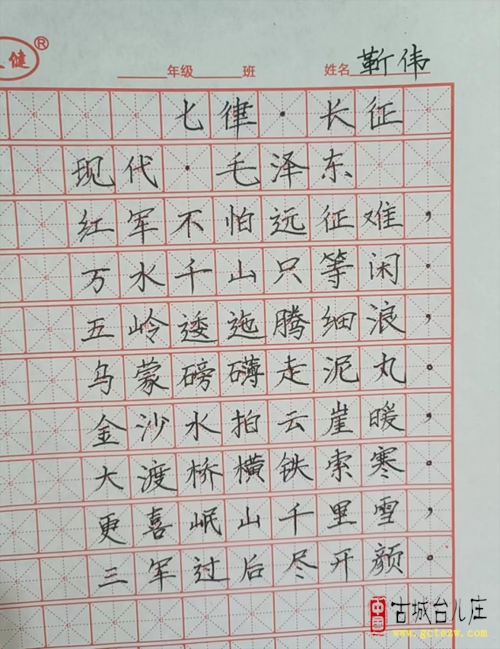 健®
年级 班 姓名 靳伟
七律·长征
现代·毛泽东
红军不怕远征难，
万水千山只等闲。
五岭逶迤腾细浪，
乌蒙磅礴走泥丸。
金沙水拍云崖暖，
大渡桥横铁索寒。
更喜岷山千里雪，
三军过后尽开颜。
中国 古城台儿庄
www.gctezw.com